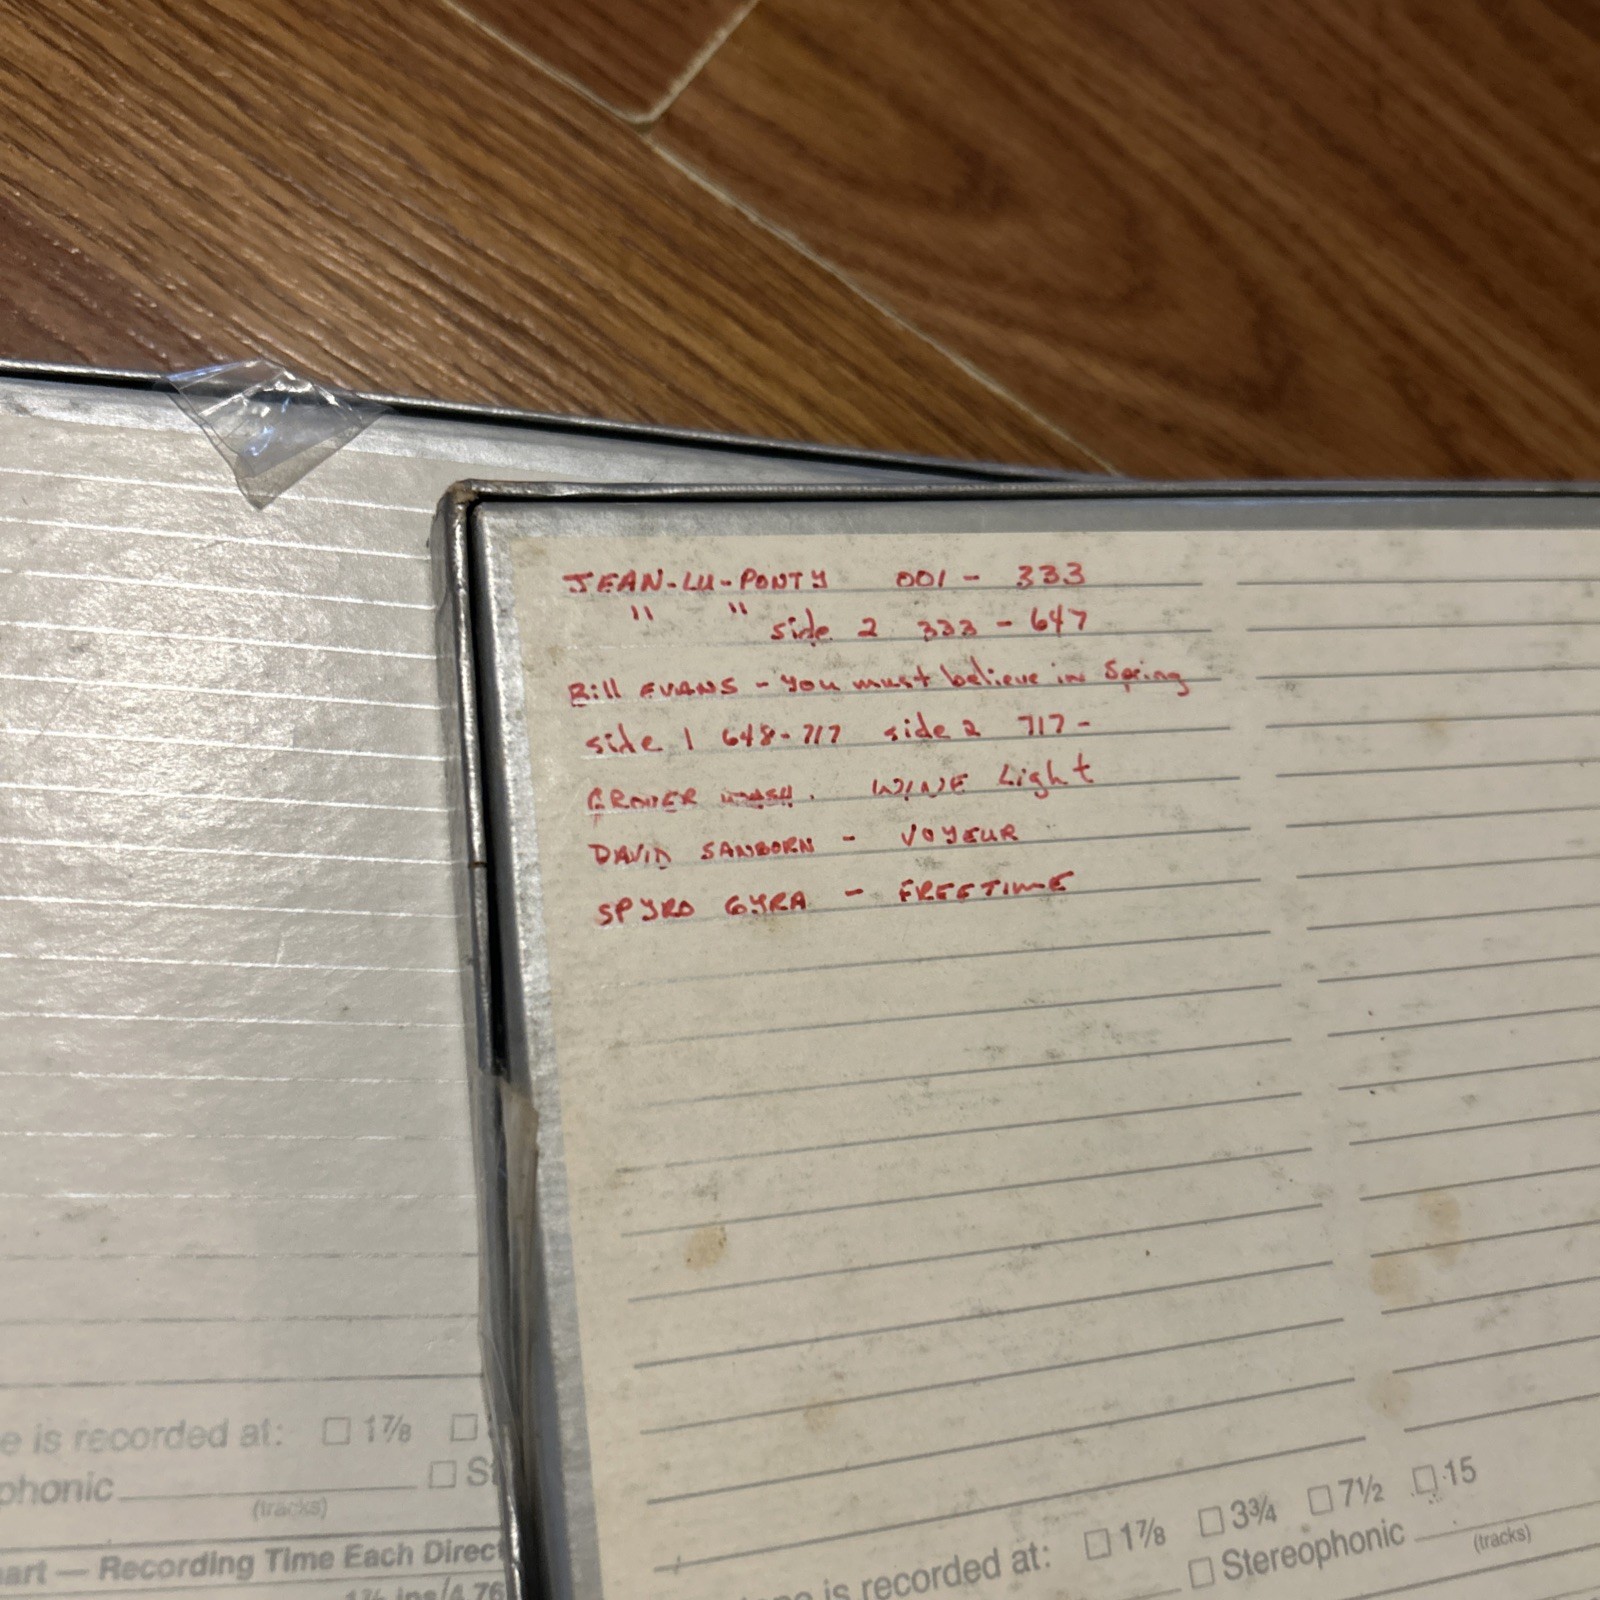 JEAN-LU-PONTY 001 - 333
" " side 2 333 - 647
Bill EVANS - You must believe in Spring
side 1 648-717 side 2 717-
GROVER WASH. WINE Light
DAVID SANBORN - VOYEUR
SPYRO GYRA - FREETIME
e is recorded at: 1⅞
phonic
(tracks)
art — Recording Time Each Direc
is recorded at: 1⅞ 3¾ 7½ 15
Stereophonic
(tracks)